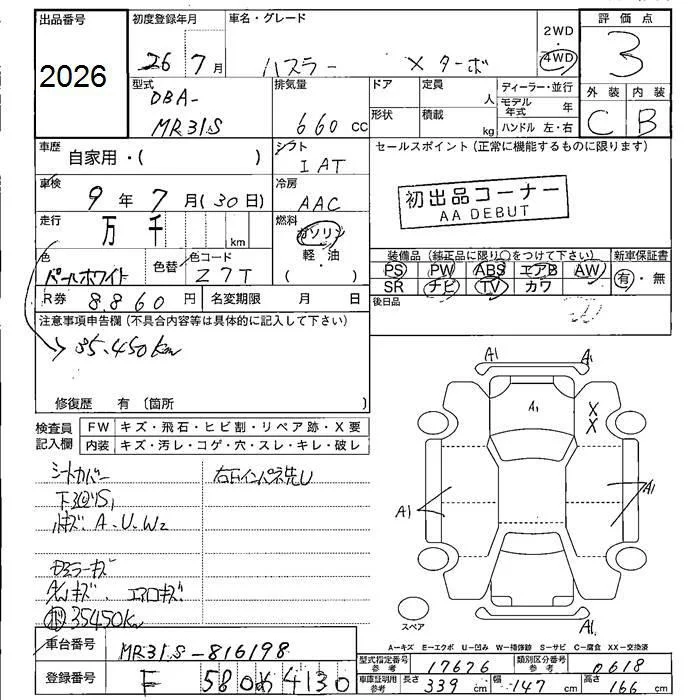 出品番号
2026
初度登録年月
26 7月
車名・グレード
ハスラー X ターボ
2WD
・
4WD
評価点
3
外装 内装
C B
型式
DBA-
MR31S
排気量
660 cc
ドア
形状
定員
人
積載
kg
ディーラー・並行
モデル年式 年
ハンドル 左・右
車歴
自家用・( )
シフト
IAT
セールスポイント (正常に機能するものに限ります)
車検
9年 7月(30日)
冷房
AAC
初出品コーナー
AA DEBUT
走行
万 千 km
燃料
ガソリン
・
軽・油
( )
色
パールホワイト
色替
色コード
Z7T
装備品 (純正品に限り○をつけて下さい)
PS PW ABS エアB AW
SR ナビ TV カワ
新車保証書
有・無
R券 8,860円
名変期限 月 日
後日品
注意事項申告欄 (不具合内容等は具体的に記入して下さい)
35,450km
修復歴 有 (箇所 )
検査員記入欄
FW キズ・飛石・ヒビ割・リペア跡・X要
内装 キズ・汚レ・コゲ・穴・スレ・キレ・破レ
シートカバー
右下インパネ先U
A・U・W2
エアロキズ
35450km
A1 A1
A1
X
X
A1 A1
A1
スペア
A-キズ E-エクボ U-凹み W-補修跡 S-サビ C-腐食 XX-交換済
車台番号
MR31S-816198
登録番号
580 あ 4130
型式指定番号 参考
17626
類別区分番号 参考
0618
車庫証明用 参考
長さ 339 cm
幅 147 cm
高さ 166 cm